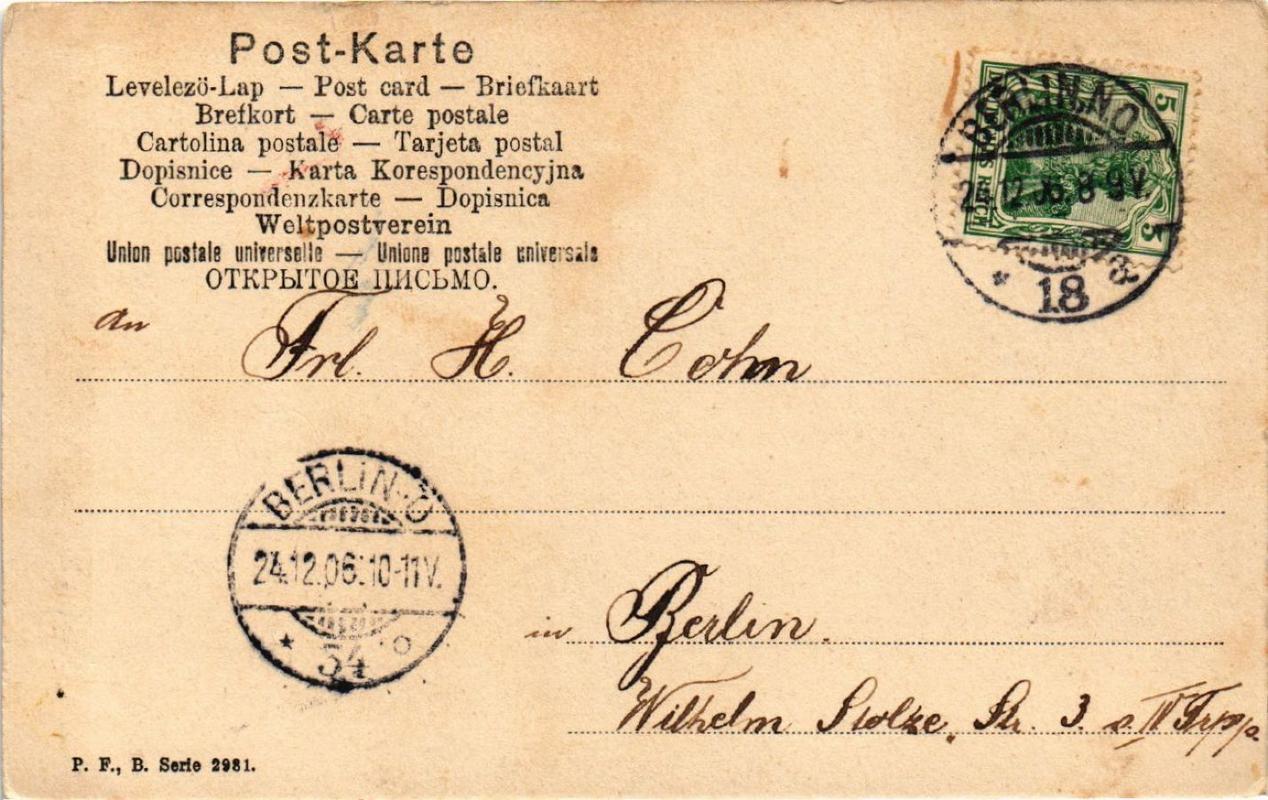 Post-Karte
Levelezö-Lap — Post card — Briefkaart
Brefkort — Carte postale
Cartolina postale — Tarjeta postal
Dopisnice — Karta Korespondencyjna
Correspondenzkarte — Dopisnica
Weltpostverein
Union postale universelle — Unione postale universale
ОТКРЫТОЕ ПИСЬМО.
5
5
BERLIN.N.O.
24.12.06. 8-9V.
* 18 a
an
Frl. H. Cohn
BERLIN.O
24.12.06.10-11V.
* 34 o
in Berlin.
Wilhelm Stolze. Str. 3. IV
P. F., B. Serie 2981.